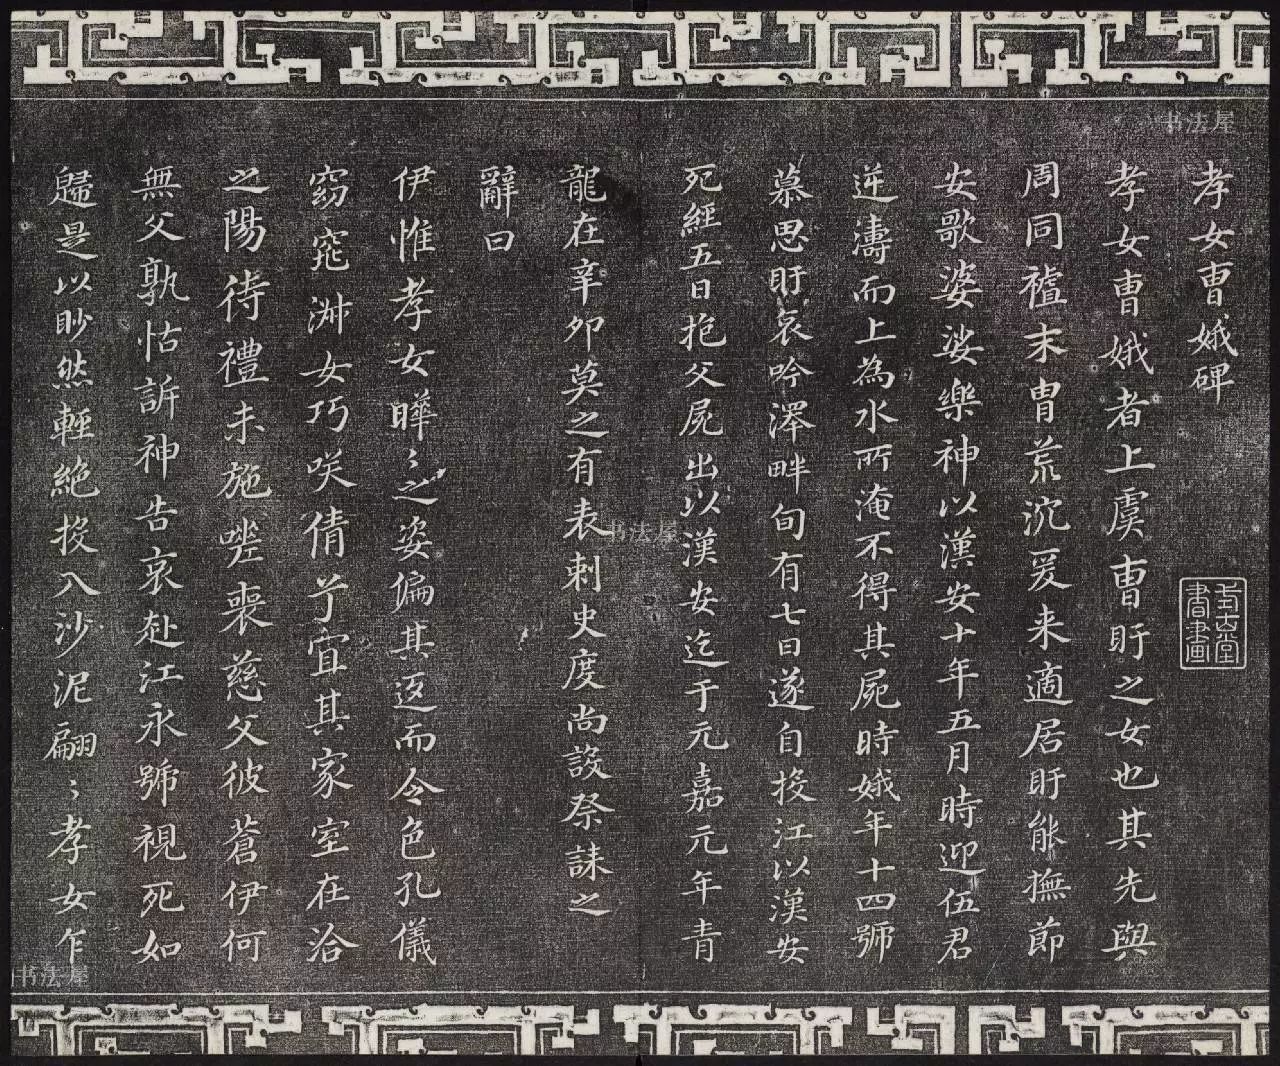 孝女曹娥碑
孝女曹娥者上虞曹盱之女也其先與
周同禇末胄荒沉爰来適居盱能撫節
安歌婆娑樂神以漢安十年五月時迎伍君
逆濤而上為水所淹不得其屍時娥年十四號
慕思盱哀吟澤畔旬有七日遂自投江以漢安
死經五日抱父屍出以漢安迄于元嘉元年青
龍在辛卯莫之有表刺史度尚設祭誄之
辭曰
伊惟孝女曄〻之姿偏其返而令色孔儀
窈窕淑女巧咲倩兮宜其家室在洽
之陽待禮未施嗟喪慈父彼蒼伊何
無父孰怙訴神告哀赴江永號視死如
歸是以眇然輕絶投入沙泥翩〻孝女乍
书法屋
书法屋
书法屋